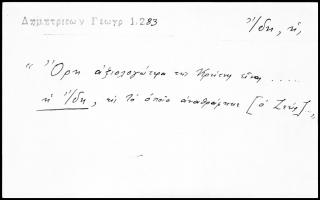 Δημητρίεων Γεωγρ 1.283
Ἴδη, ἡ,
" Ὄρη ἀξιολογώτερα τῆς Κρήτης εἶναι .....
ἡ Ἴδη, εἰς τὸ ὁποῖο ἀναθράφηκε [ὁ Ζεύς]..,